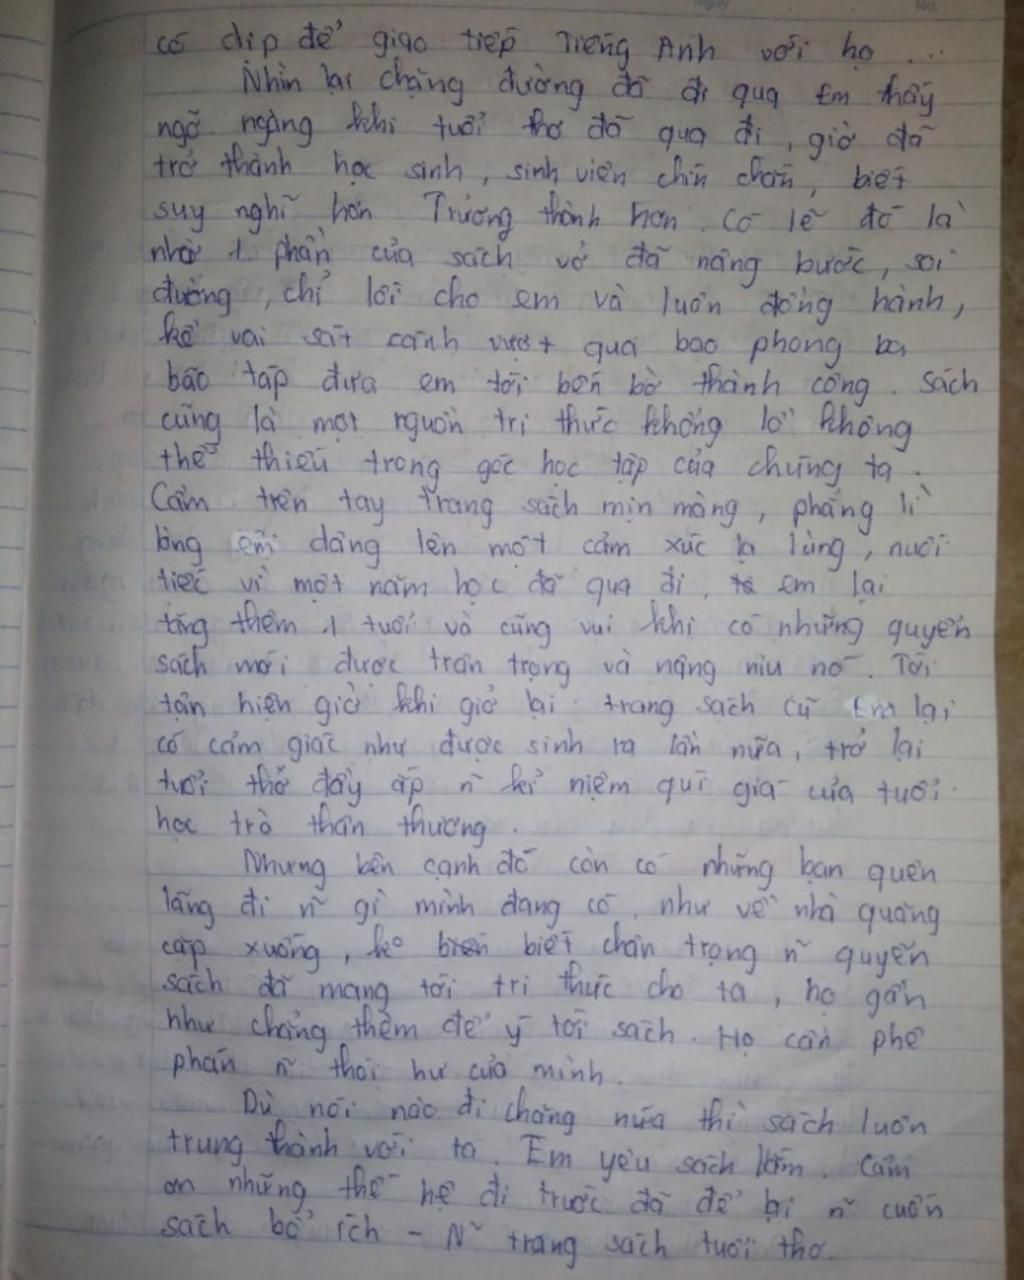 có dịp để giao tiếp Tiếng Anh với họ ...
Nhìn lại chặng đường đã đi qua Em thấy
ngỡ ngàng khi tuổi thơ đã qua đi, giờ đã
trở thành học sinh, sinh viên chín chắn, biết
suy nghĩ hơn Trưởng thành hơn. Có lẽ đó là
nhờ 1 phần của sách vở đã nâng bước, soi
đường, chỉ lối cho em và luôn đồng hành,
kề vai sát cánh vượt qua bao phong ba
bão táp đưa em tới bến bờ thành công. Sách
cũng là một nguồn tri thức khổng lồ không
thể thiếu trong góc học tập của chúng ta.
Cầm trên tay trang sách mịn màng, phẳng lì
lòng em dâng lên một cảm xúc lạ lùng, nuối
tiếc vì một năm học đã qua đi, em lại
tăng thêm 1 tuổi và cũng vui khi có những quyển
sách mới được trân trọng và nâng niu nó. Tới
tận hiện giờ khi giở lại trang sách cũ Em lại
có cảm giác như được sinh ra lần nữa, trở lại
tuổi thơ đầy ắp ñ kỉ niệm quí giá của tuổi
học trò thân thương.
Nhưng bên cạnh đó còn có những bạn quên
lãng đi ñ gì mình đang có, như về nhà quăng
cặp xuống, ko biết chân trọng ñ quyển
sách đã mang tới tri thức cho ta, họ gần
như chẳng thèm để ý tới sách. Họ cần phê
phán ñ thói hư của mình.
Dù nói nào đi chăng nữa thì sách luôn
trung thành với ta. Em yêu sách lắm. Cảm
ơn những thế hệ đi trước đã để lại ñ cuốn
sách bổ ích - Ñ trang sách tuổi thơ.